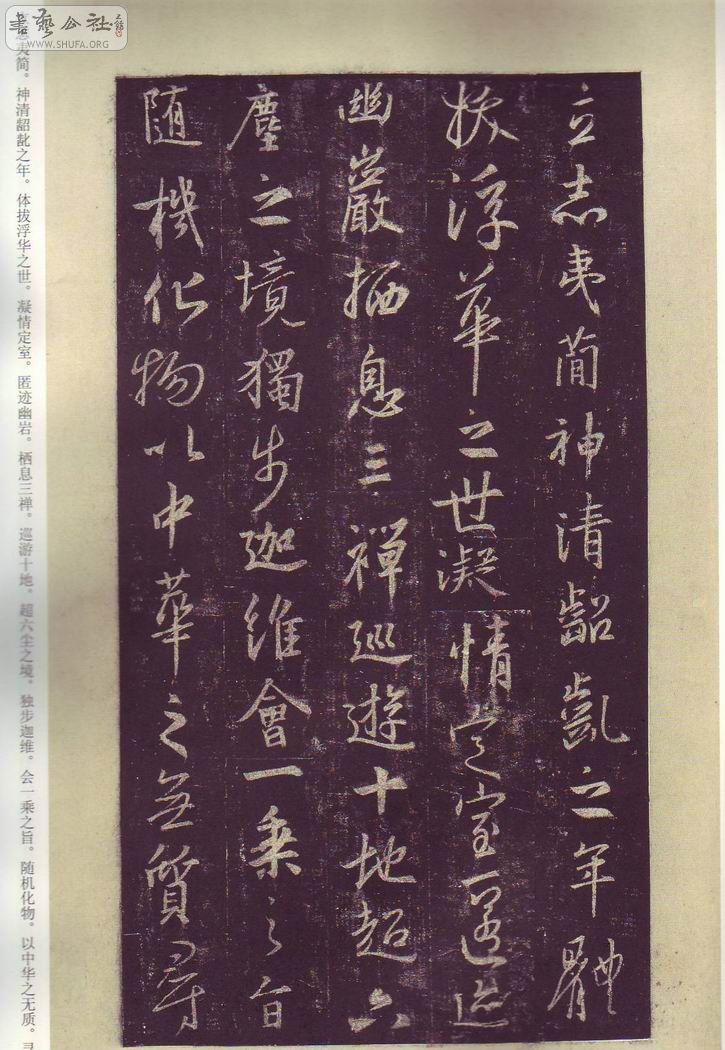 書藝公社
WWW.SHUFA.ORG
立志夷簡神清齠齔之年體
拔浮華之世凝情定室匿迹
幽巖栖息三禪巡遊十地超六
塵之境獨步迦維會一乘之旨
随機化物以中華之無質尋
夷简。神清龆龀之年。体拔浮华之世。凝情定室。匿迹幽岩。栖息三禅。巡游十地。超六尘之境。独步迦维。会一乘之旨。随机化物。以中华之无质。寻